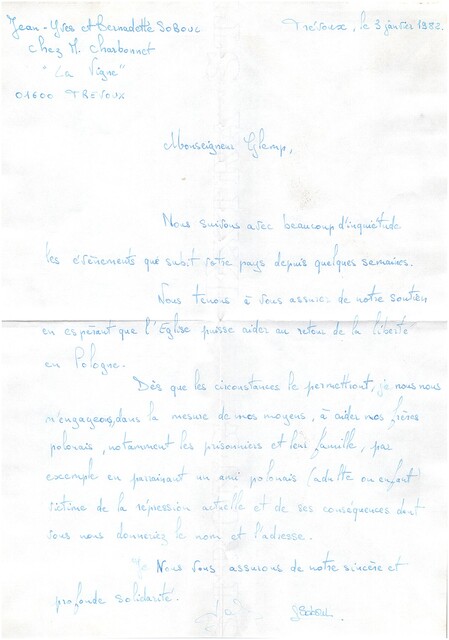 Jean-Yves et Bernadette SOBOUL
Chez M. Charbonnet
"La Vigne"
01600 TREVOUX
Trévoux, le 3 janvier 1982.
Monseigneur Glemp,
Nous suivons avec beaucoup d'inquiétude
les évènements que subit votre pays depuis quelques semaines.
Nous tenons à vous assurer de notre soutien
en espérant que l'Eglise puisse aider au retour de la liberté
en Pologne.
Dès que les circonstances le permettront, nous nous
engageons, dans la mesure de nos moyens, à aider nos frères
polonais, notamment les prisonniers et leur famille, par
exemple en parrainant un ami polonais (adulte ou enfant)
victime de la répression actuelle et de ses conséquences dont
vous nous donneriez le nom et l'adresse.
Nous vous assurons de notre sincère et
profonde solidarité.